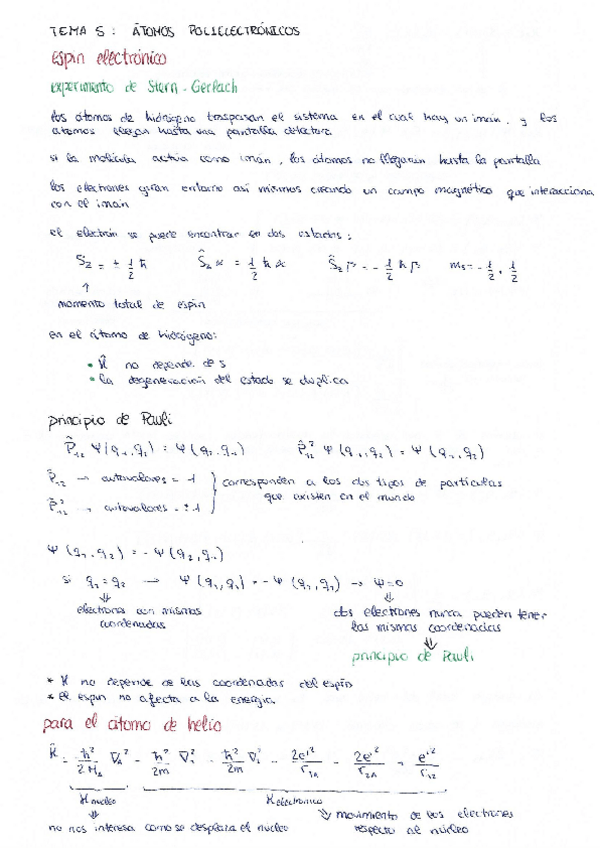 TEMA 5: ÁTOMOS POLIELECTRÓNICOS
espín electrónico
experimento de Stern-Gerlach
los átomos de hidrógeno traspasan el sistema en el cual hay un imán, y los
átomos llegan hasta una pantalla detectora
si la molécula actúa como imán, los átomos no llegarían hasta la pantalla
los electrones giran entorno así mismos creando un campo magnético que interacciona
con el imán
el electrón se puede encontrar en dos estados:
S_z = ± 1/2 ħ    Ŝ_z α = 1/2 ħ α    Ŝ_z β = - 1/2 ħ β    m_s = - 1/2, 1/2
↑
momento total de espín
en el átomo de hidrógeno:
• Ĥ no depende de s
• la degeneración del estado se duplica
principio de Pauli
P̂₁₂ Ψ(q₁,q₂) = Ψ(q₂,q₁)    P̂₁₂² Ψ(q₁,q₂) = Ψ(q₁,q₂)
P̂₁₂ → autovalores = 1 } corresponden a los dos tipos de partículas
que existen en el mundo
P̂₁₂² → autovalores = ±1
Ψ(q₁,q₂) = -Ψ(q₂,q₁)
si q₁=q₂ → Ψ(q₁,q₁) = -Ψ(q₁,q₁) → Ψ=0
⇓ ⇓
electrones con mismas    dos electrones nunca pueden tener
coordenadas    las mismas coordenadas
⇓
principio de Pauli
* Ĥ no depende de las coordenadas del espín
* el espín no afecta a la energía
para el átomo de helio
Ĥ = - ħ²/2M_A ∇_A² - ħ²/2m ∇₁² - ħ²/2m ∇₂² - 2e'²/r₁A - 2e'²/r₂A + e'²/r₁₂
Ĥ núcleo    Ĥ electrónico
⇓ ⇓ movimiento de los electrones
no nos interesa como se desplaza el núcleo    respecto al núcleo